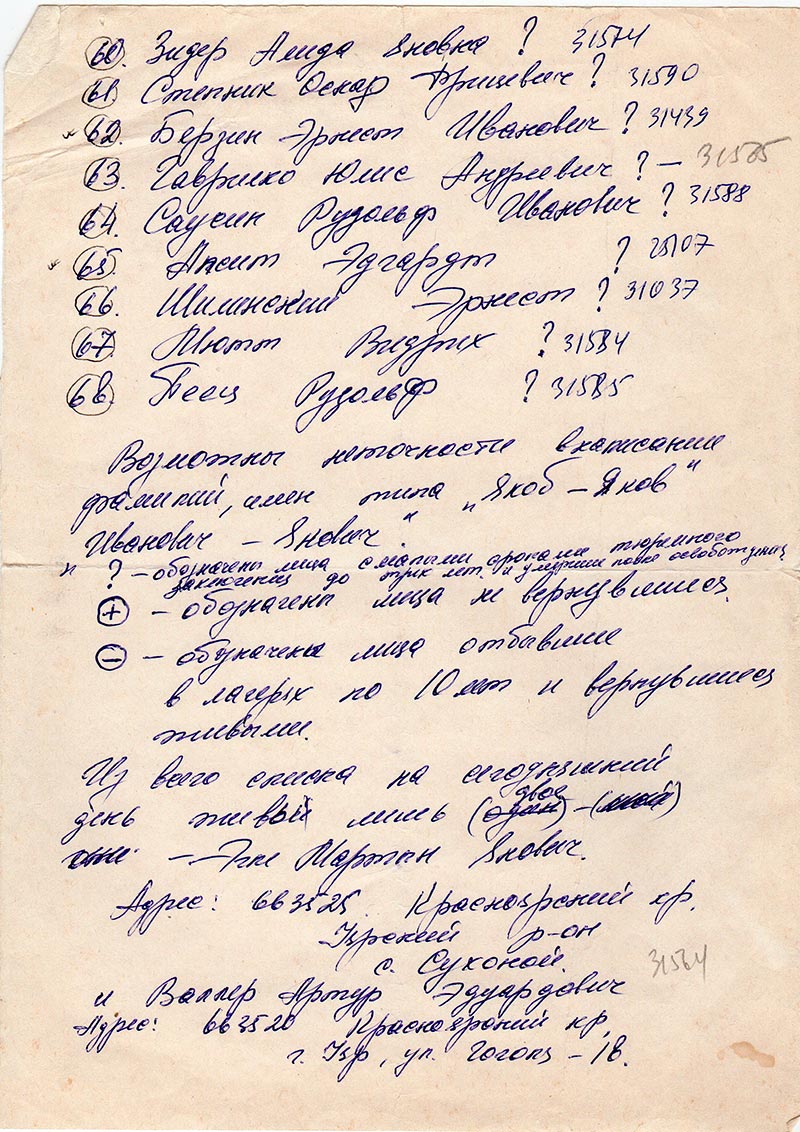 60. Зидер Алида Яновна ? 31574
61. Степник Оскар Фрицевич ? 31590
62. Берзин Эрнест Иванович ? 31439
63. Гаврилко Юлис Андреевич ? — 31585
64. Саусин Рудольф Иванович ? 31588
65. Апсит Эдгардт ? 25107
66. Шилинский Эрнест ? 31037
67. Мютт Видрих ? 31584
68. Пеец Рудольф ? 31585
Возможны неточности в написании
фамилий, имен типа „Якоб – Яков"
Иванович – Янович".
? – обозначены лица с малыми сроками тюремного
заключения до трех лет. и умерши после освобождения
+ – обозначены лица не вернувшиеся.
– – обозначены лица отбывшие
в лагерях по 10 лет и вернувшиеся
живыми.
Из всего списка на сегодняшний
двое
день живы лишь (один) – (мой)
– Эпи Мартын Янович.
Адрес: 663525 Красноярский кр.
Ирский р-он
с. Сухоной.
31564
и Валлер Артур Эдуардович
Адрес: 663520 Красноярский кр,
г. Ир, ул. Гоголя – 18.